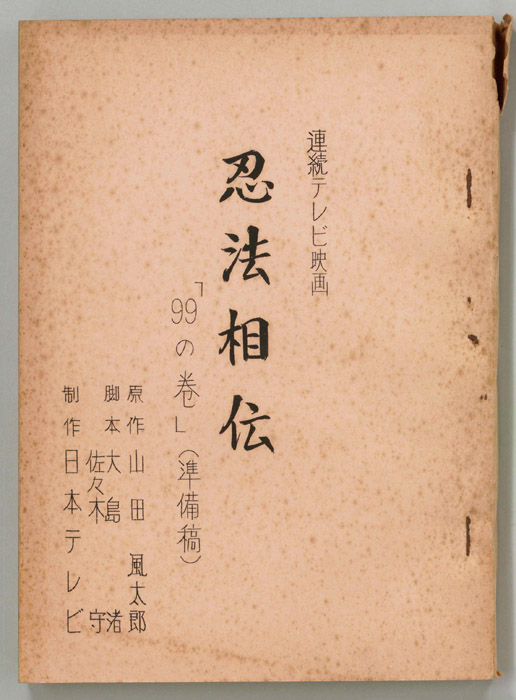 連続テレビ映画
忍法相伝
「99の巻」(準備稿)
原作 山田 風太郎
脚本 大島 渚
佐々木 守
制作 日本テレビ